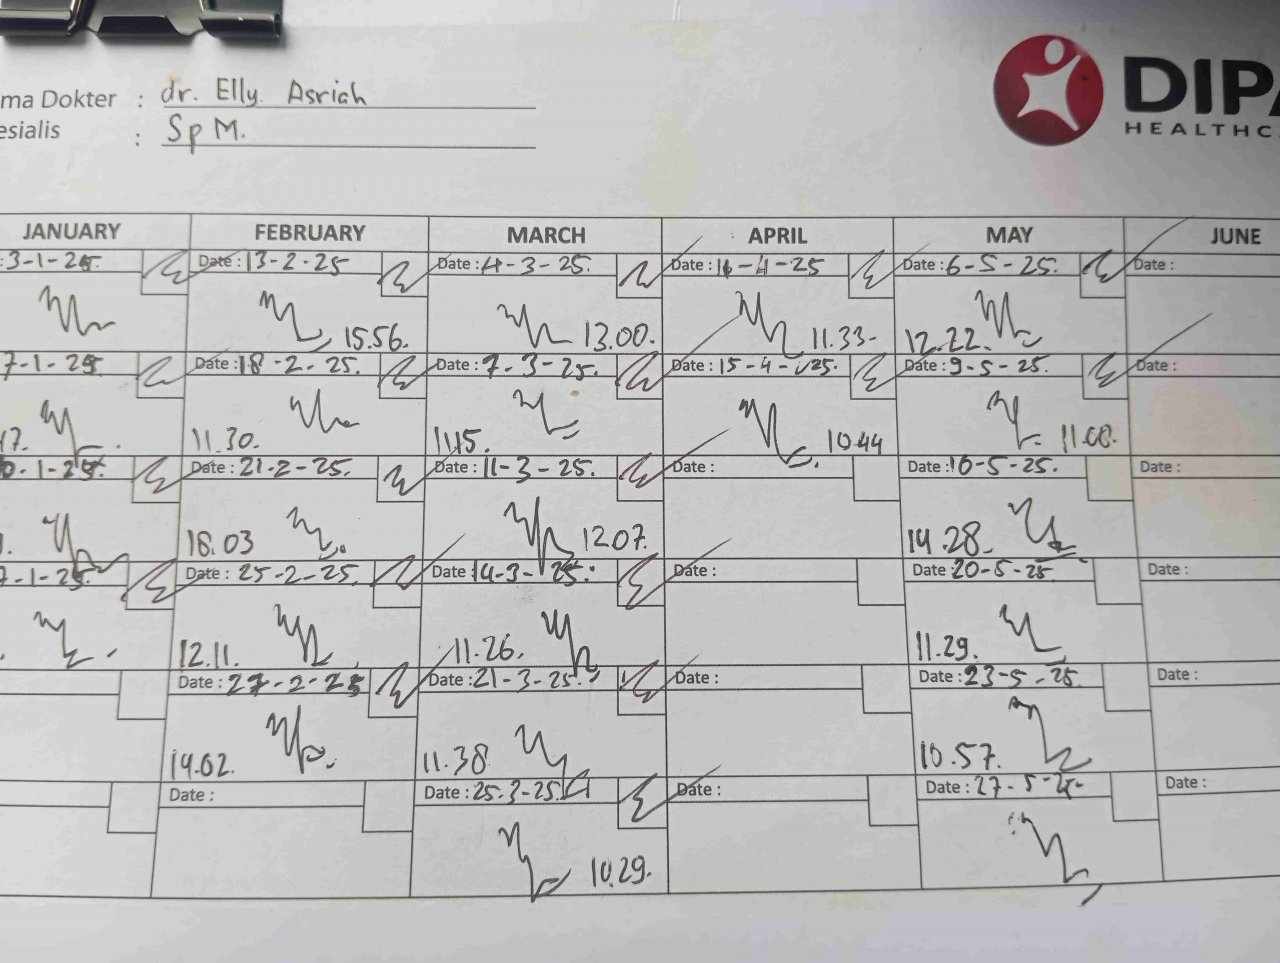 ma Dokter : dr. Elly Asriah
esialis : Sp M.
DIPA
HEALTHC
JANUARY FEBRUARY MARCH APRIL MAY JUNE
: 3-1-25. Date : 13-2-25 Date : 4-3-25. Date : 11-4-25 Date : 6-5-25. Date :
15.56. 13.00. 11.33- 12.22.
7-1-25 Date : 18-2-25. Date : 7-3-25. Date : 15-4-25. Date : 9-5-25. Date :
17. 11.30. 11.15. 10.44 11.08.
0.1-25. Date : 21-2-25. Date : 11-3-25. Date : Date : 16-5-25. Date :
18.03 12.07. 14.28.
7-1-25. Date : 25-2-25. Date : 14-3-25. Date : Date : 20-5-25. Date :
12.11. 11.26. 11.29.
Date : 27-2-25 Date : 21-3-25. Date : Date : 23-5-25. Date :
14.02. 11.38 10.57.
Date : Date : 25.3-25. Date : Date : 27-5-25. Date :
10.29.